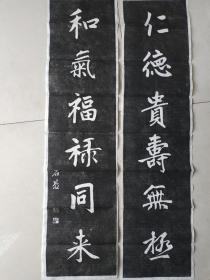 仁德貴壽無極
和氣福祿同来
石菴